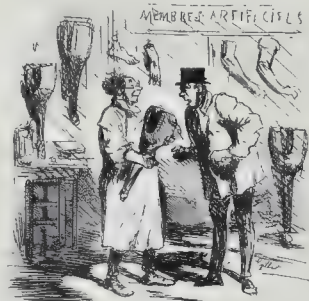 MEMBRES ARTIFICIELS